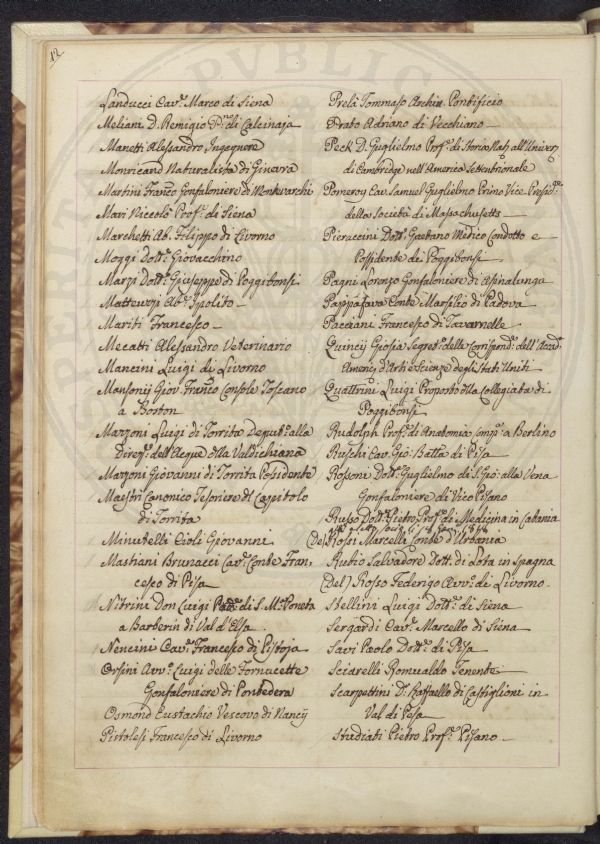 12
Landucci Cav.e Marco di Siena
Meliani D. Remigio P.re di Calcinaja
Manetti Alessandro Ingegnere
Monricand Naturalista di Ginevra
Martini Franc.o Gonfaloniere di Montevarchi
Mari Niccolò Prof.e di Siena
Marchetti Ab. Filippo di Livorno
Moggi Dott.e Giovacchino
Marzi Dott.e Giuseppe di Poggibonsi
Matteuzzi Ab.e Ippolito
Mariti Francesco
Mecatti Alessandro Veterinario
Mancini Luigi di Livorno
Mansonij Giov. Franc.o Console Toscano
a Boston
Marzoni Luigi di Torrita Deput.o alla
Direz.e dell'Acque della Valdichiana
Marzoni Giovanni di Torrita Possidente
Maestri Canonico Tesoriere del Capitolo
di Torrita
Minutelli Cioli Giovanni
Mastiani Brunacci Cav.e Conte Fran-
cesco di Pisa
Nitrini Don Luigi di S. M.a Poneta
a Barberin di Val d'Elsa
Nencini Cav.e Francesco di Pistoja
Orsini Avv.o Luigi delle Fornacette
Gonfaloniere di Pontedera
Osmond Eustachio Vescovo di Nancij
Pistolesi Francesco di Livorno
Prelà Tommaso Archia. Pontificio
Prato Adriano di Vecchiano
Peck D. Guglielmo Prof.e di Storia Nat. all'Univers.
di Cambridge nell'America Settentrionale
Pomeroy Cav. Samuel Guglielmo Primo Vice Presid.e
della Società di Massachusetts
Pieraccini Dott.e Gaetano Medico Condotto e
Possidente di Poggibonsi
Pagni Lorenzo Gonfaloniere di Asinalunga
Pappafava Conte Marsilio di Padova
Pacciani Francesco di Tavarnelle
Quincij Giosia Segret.o della Corrispond.a dell'Accad.a
Americ. d'Arti e Scienze degli Stati Uniti
Quattrini Luigi Proposto della Collegiata di
Poggibonsi
Rudolph Prof.e di Anatomia comp.a a Berlino
Ruschi Cav. Gio: Batta di Pisa
Rossoni Dott.e Guglielmo di S. Gio: alla Vena
Gonfaloniere di Vico Pisano
Russo Dott.e Pietro Prof.e di Medicina in Catania
(De) Rossi Marcelli Conte d'Urbania
Rubio Salvadore Dott. di Lota in Spagna
(Del) Rosso Federigo Avv.o di Livorno
Stellini Luigi Dott.e di Siena
Sergardi Cav.e Marcello di Siena
Savi Paolo Dott.e di Pisa
Sciarelli Romualdo Tenente
Scarpettini D.e Raffaello di Castiglioni in
Val di Pesa
Studiati Pietro Prof.e Pisano